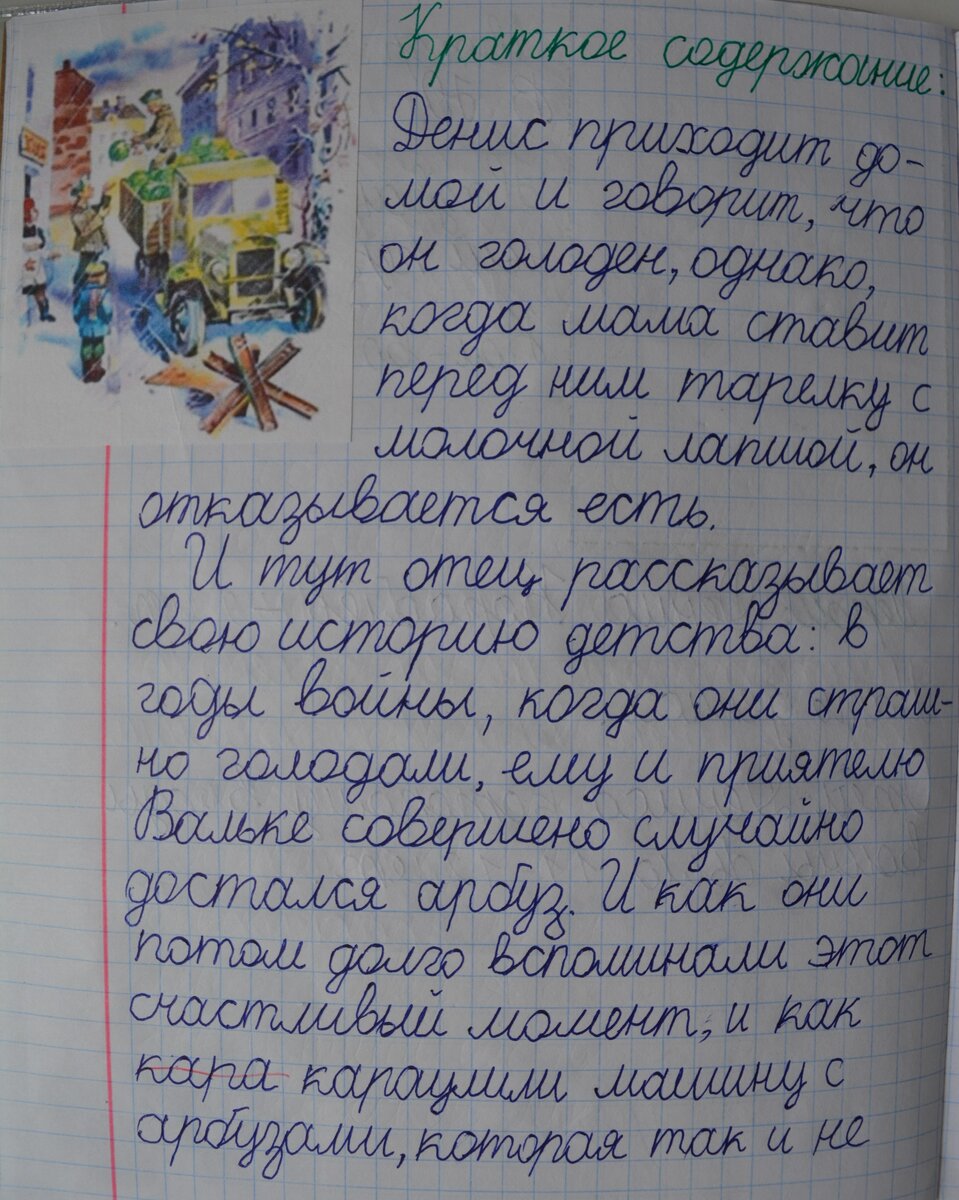 Краткое содержание:
Денис приходит до-
мой и говорит, что
он голоден, однако,
когда мама ставит
перед ним тарелку с
молочной лапшой, он
отказывается есть.
И тут отец рассказывает
свою историю детства: в
годы войны, когда они страш-
но голодали, ему и приятелю
Вальке совершено случайно
достался арбуз. И как они
потом долго вспоминали этот
счастливый момент, и как
кара караулили машину с
арбузами, которая так и не